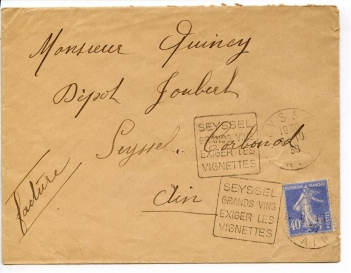 Monsieur Quincy
Dépôt Joubert
Seyssel Corbonod
Ain
facture
SEYSSEL
GRANDS VINS
EXIGER LES
VIGNETTES
SEYSSEL
GRANDS VINS
EXIGER LES
VIGNETTES
40